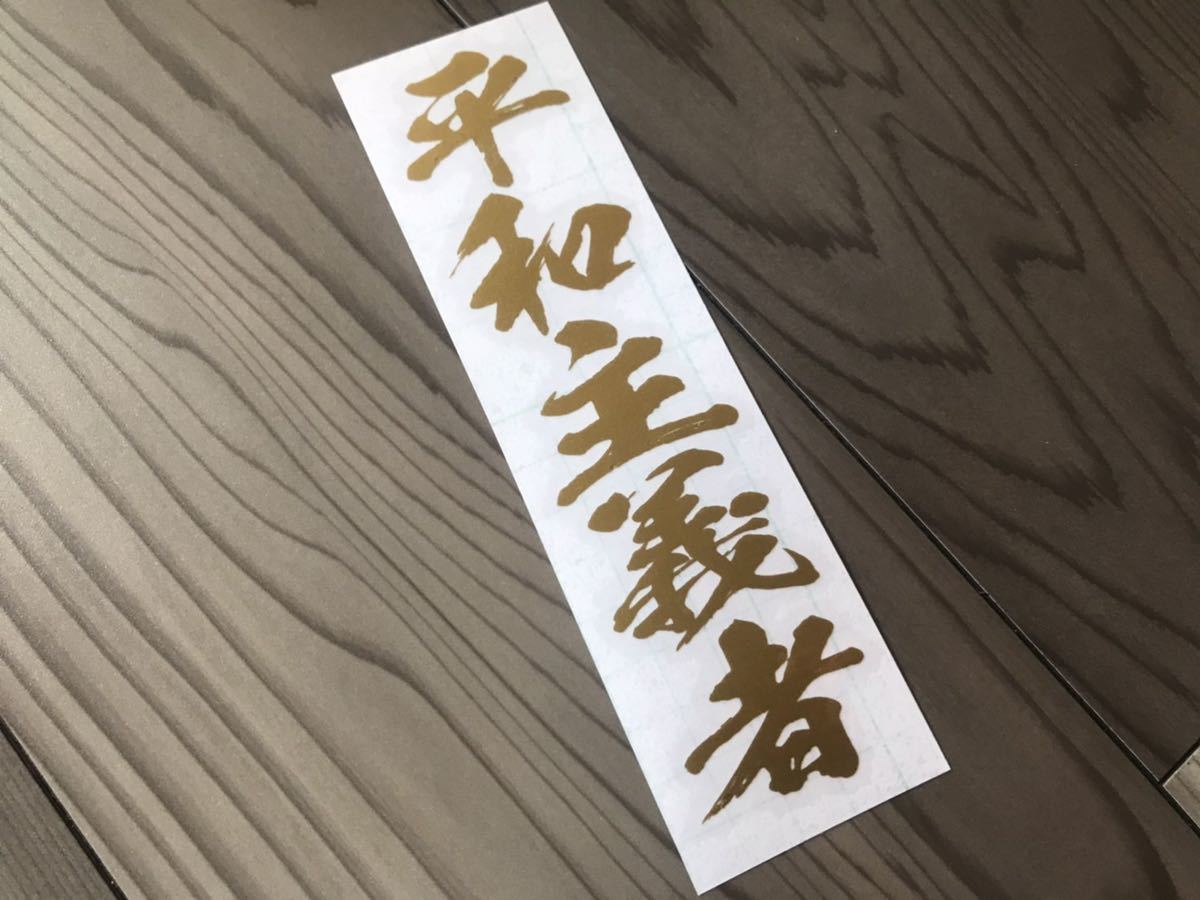 平和主義者